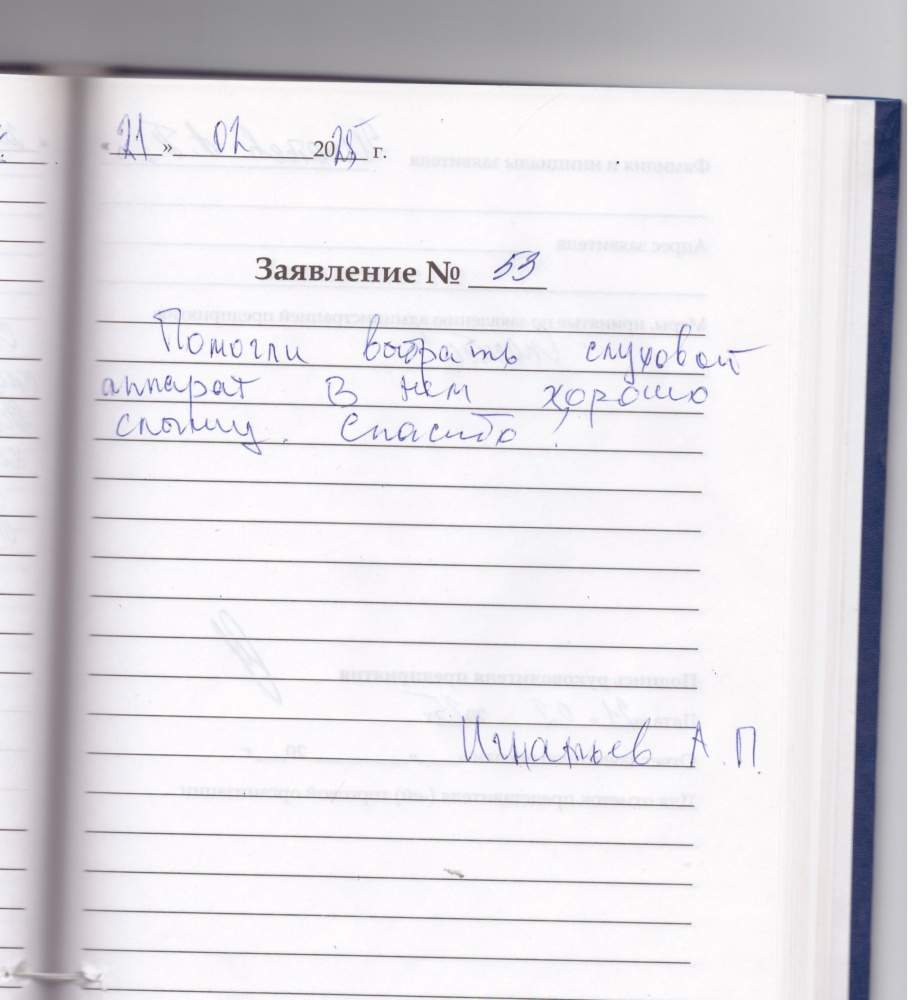 « 21 » 02 2025 г.
Заявление № 53
Помогли выбрать слуховой
аппарат В нем хорошо
слышу. Спасибо!
Игнатьев А.П.